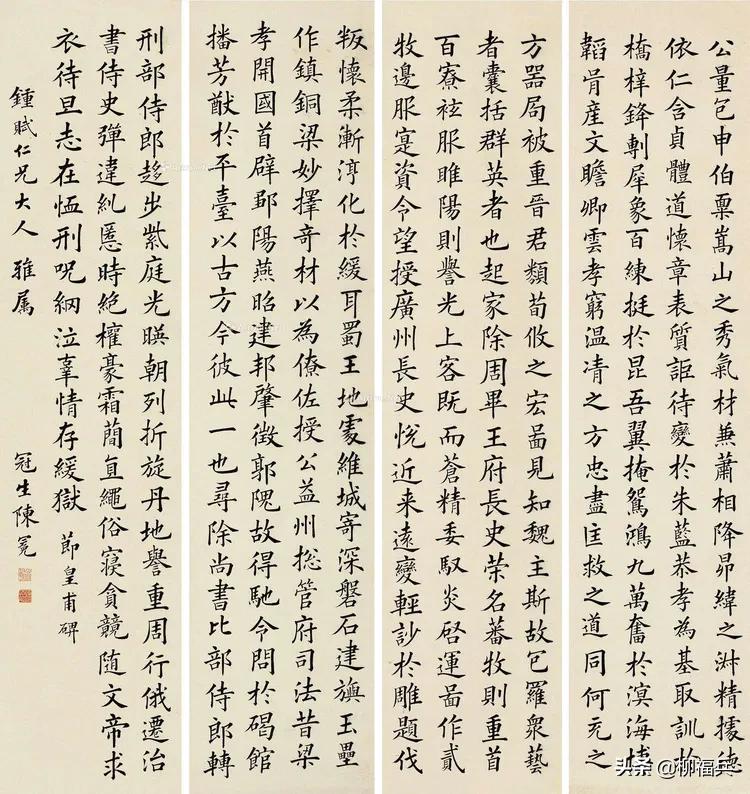 公量包申伯稟嵩山之秀氣材兼蕭相降昴緯之淋精據德
依仁含貞體道懷章表質詎待變於朱藍恭孝為基取訓於
橋梓鋒剸犀象百練挺於昆吾翼掩鴛鴻九萬奮於溟海博
韜骨産文贍卿雲孝窮温凊之方忠盡匡救之道同何充之
方器局被重晉君類荀攸之宏啚見知魏主斯故包羅衆藝
者囊括群英者也起家除周畢王府長史荣名蕃牧則重首
百寮袨服睢陽則譽光上客既而蒼精委馭炎啓運啚作貳
牧邊服寔資令望授廣州長史悦近来遠變輕訬於雕題伐
叛懷柔漸淳化於緩耳蜀王地處維城寄深磐石建旟玉壘
作鎮銅梁妙擇奇材以為僚佐授公益州揔管府司法昔梁
孝開國首辟鄒陽燕昭建邦肇徵郭隗故得馳令問於碣館
播芳猷於平臺以古方今彼此一也尋除尚書比部侍郎轉
刑部侍郎趍步紫庭光暎朝列折旋丹地譽重周行俄遷治
書侍史彈違糺慝時絶權豪霜簡直繩俗寢貪競随文帝求
衣待旦志在恤刑咒網泣辜情存緩獄 節皇甫碑
鍾賦仁兄大人雅属 冠生陳冕
头条 @柳福兵